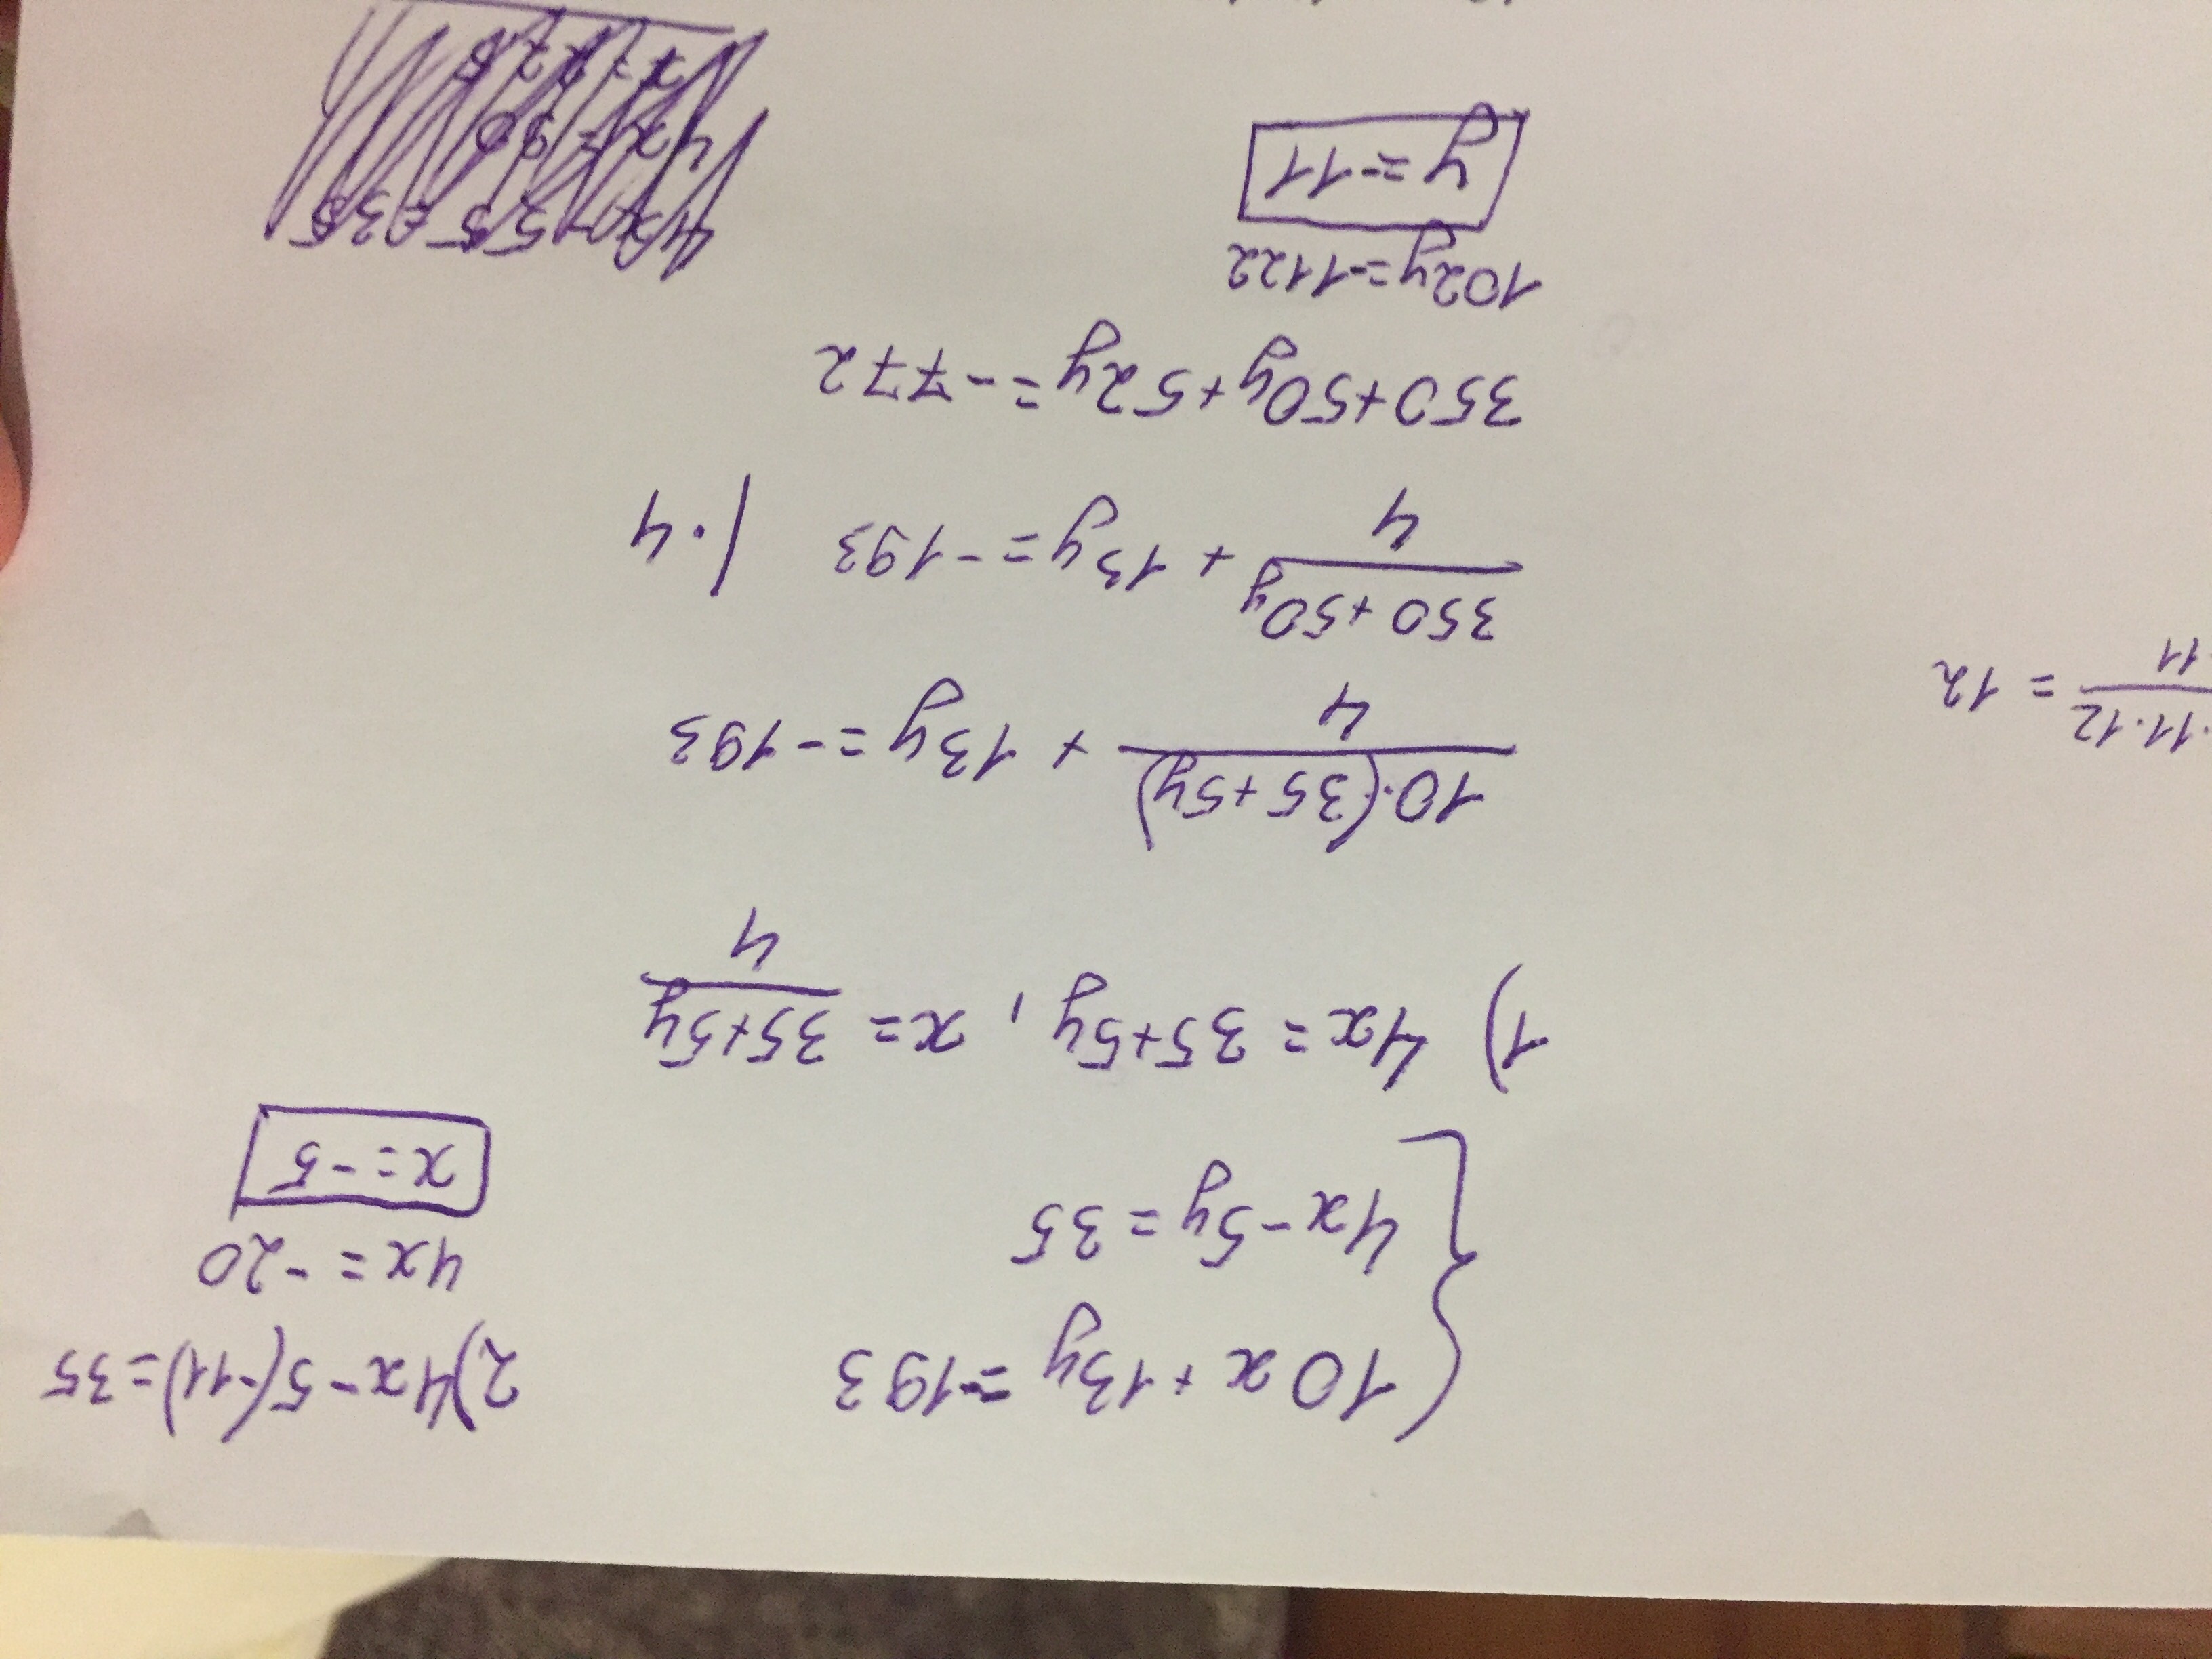 10x + 13y = -193
4x - 5y = 35
1) 4x = 35 + 5y, x = 35+5y / 4
10·(35+5y) / 4 + 13y = -193
350 + 50y / 4 + 13y = -193 | · 4
350 + 50y + 52y = -772
102y = -1122
y = -11
2) 4x - 5(-11) = 35
4x = -20
x = -5
·11·12 / 11 = 12